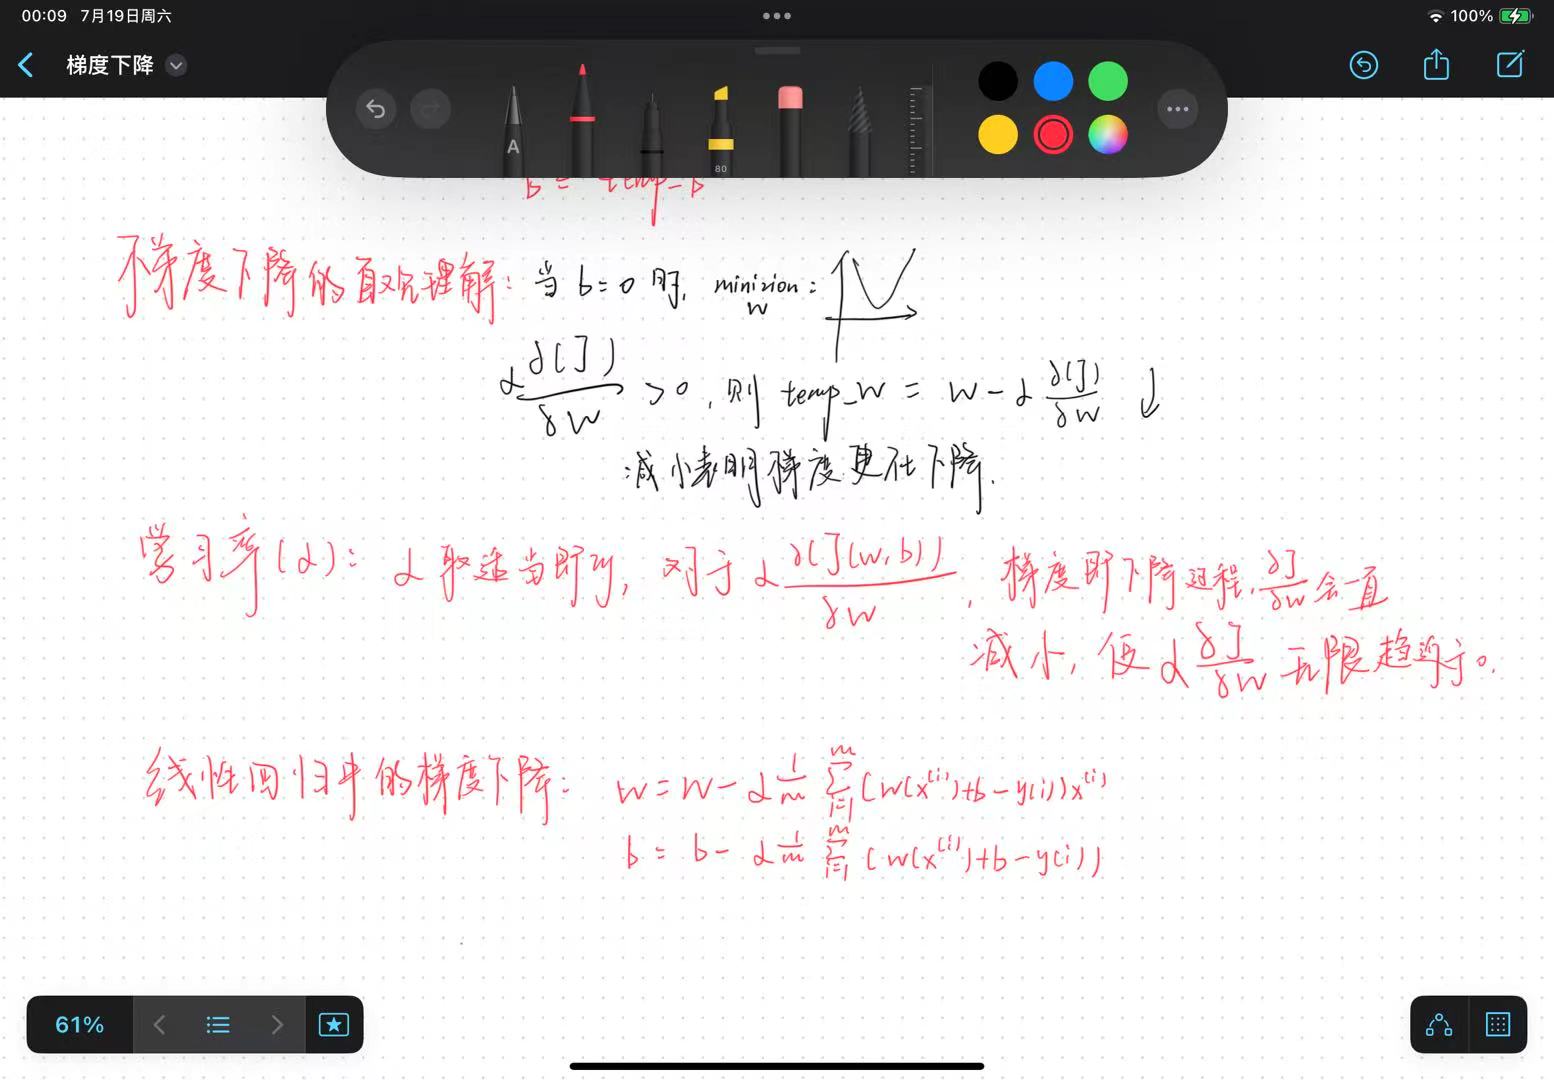 00:09 7月19日周六
100%
梯度下降
A
80
b = temp_b
梯度下降的直观理解: 当 b=0 时, minizion:
w
α ∂(J)/∂w >0, 则 temp_w = w-α ∂(J)/∂w ↓
减小表明梯度更在下降.
学习率(α): α取适当即可, 对于 α ∂(J(w,b))/∂w, 梯度即下降过程, ∂J/∂w 会一直
减小, 使 α ∂J/∂w 无限趋近于0.
线性回归中的梯度下降: w = w - α 1/m ∑_{i=1}^{m} (w(x^{(i)})+b-y(i))x^{(i)}
b = b - α 1/m ∑_{i=1}^{m} (w(x^{(i)})+b-y(i))
61%